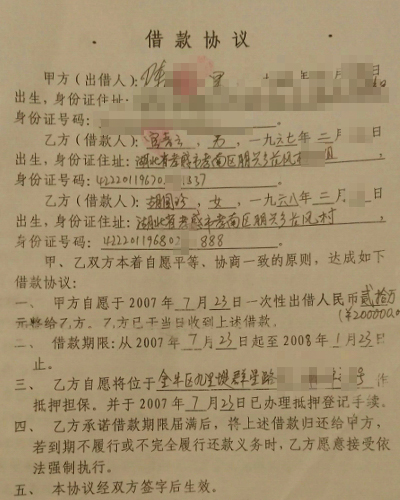 借款协议
甲方(出借人): 月 日
出生,身份证住址:
身份证号码:
乙方(借款人): 男,一九六七年 二 月 日
出生,身份证住址:湖北省孝感市孝南区朋兴乡 风
身份证号码:42220119670 337
乙方(借款人):胡国珍,女,一九六八年 三 月 日
出生,身份证住址:湖北省孝感市孝南区朋兴乡 风 村,
身份证号码:4222011968 888
甲、乙双方本着自愿平等、协商一致的原则,达成如下
借款协议:
一、甲方自愿于 2007 年 7 月 23 日一次性出借人民币 贰拾万
元整给乙方。乙方已于当日收到上述借款。(¥200000.0
二、借款期限:从 2007 年 7 月 23 日起至 2008 年 1 月 23 日
止。
三、乙方自愿将位于 群星路 号 作
抵押担保。并于 2007 年 7 月 23 日已办理抵押登记手续。
四、乙方承诺借款期限届满后,将上述借款归还给甲方,
若到期不履行或不完全履行还款义务时,乙方愿意接受依
法强制执行。
五、本协议经双方签字后生效。